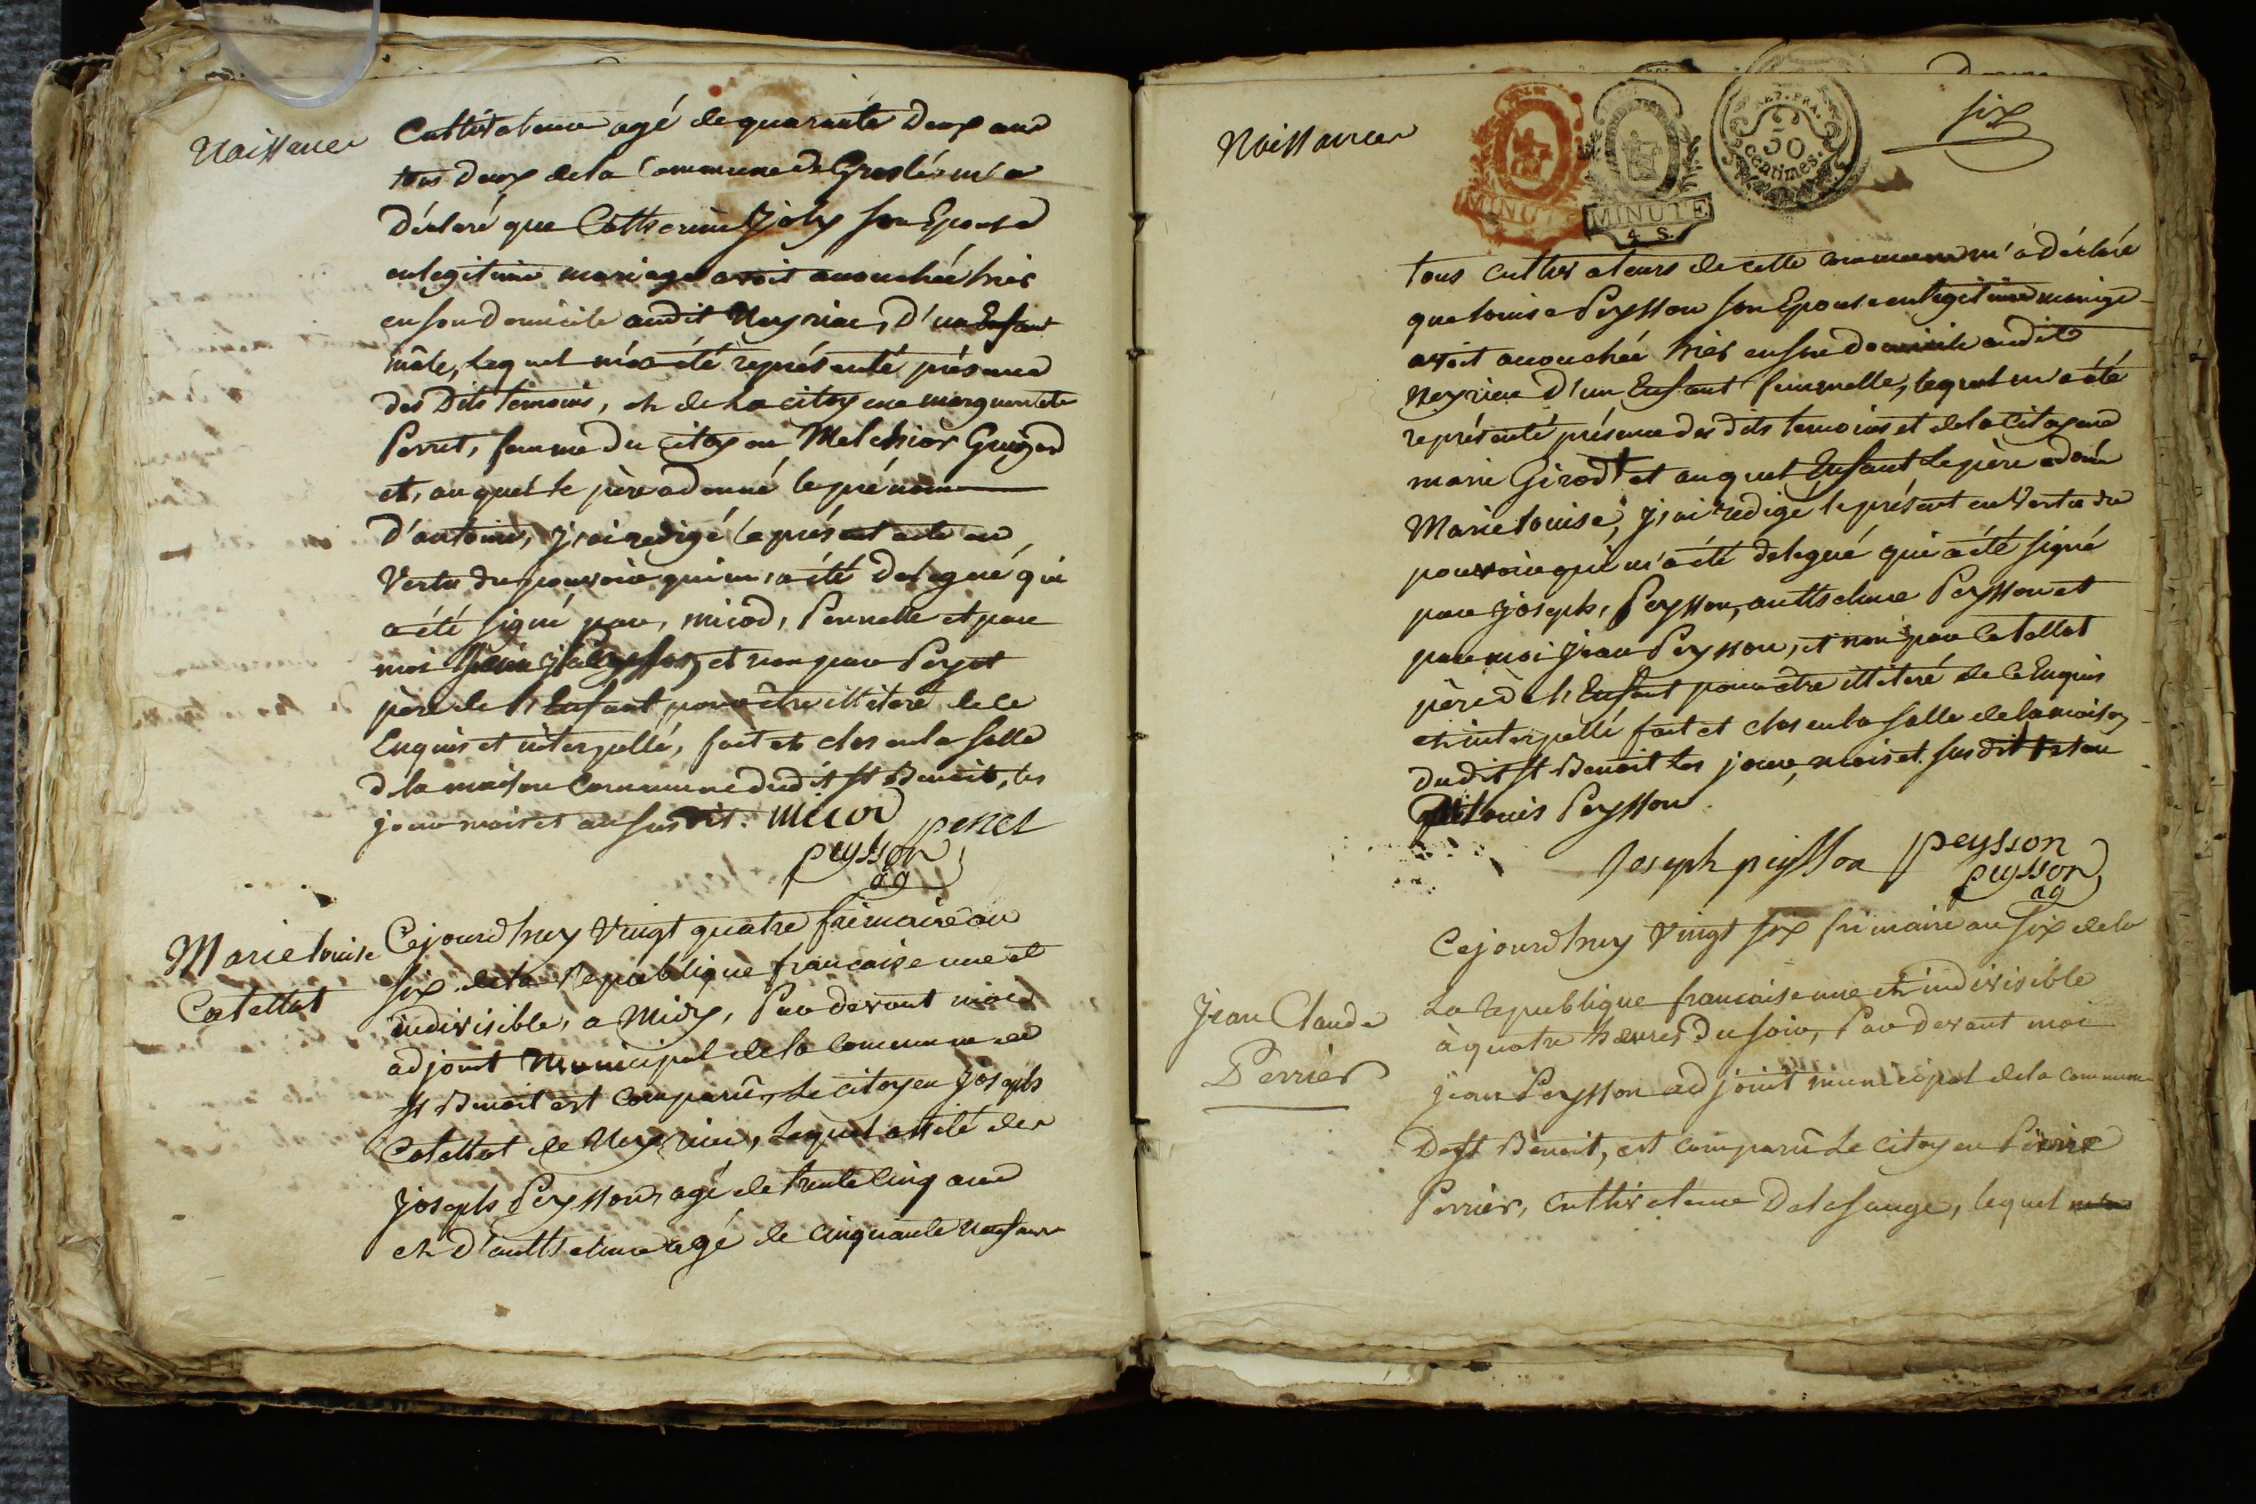 Naissances
Cultivateur agé de quarante Deux ans
tous Deux de la Commune de Groslée m'a
Déclaré que Catherine Joly son Epouse
en legitime mariage avoit accouchée hier
en son Domicile audit Neyrieu, D'un Enfant
mâle, lequel m'a été représenté présence
des Dits temoins, et de La citoyene marguerite
Perret, femme du citoyen Melchior Guigard
et, auquel le père a donné le prénom
D'antoine, j'ai redigé le présent acte en
Vertu du pouvoir qui m'a été Delegué qui
a été signé par, micod, Pernette et par
moi et non par Peyot
père de l'Enfant pour être illiteré de ce
Enquis et interpellé, fait et clos en la salle
de la maison Commune dudit St Benoit, les
jour mois et an susdit. micod
penet
peysson
ag
Marie louise
Catettat
Cejourdhuy Vingt quatre frimaire an
six de la Republique francaise une et
indivisible, a midy, Par devant moi
adjoint municipal de la Commune de
St Benoit est Comparû, Le citoyen Joseph
Catettat de Neyrieu, Lequel assité de
Joseph Peysson, agé de trente Cinq ans
et D'autthelme agé de Cinquante Neuf ans
Naissances
REP. FRA.
50
centimes.
MINUTE
MINUTE
4 S.
six
tous cultivateurs de cette commune m'a déclaré
que louise Peysson son Epouse en legitime mariage
avoit accouchée hier en son Domicile audit
Neyrieu D'un Enfant femmelle, lequel m'a été
représenté présence des dits temoins et de la Citoyene
marie Girod et auquel Enfant le père a doné
Marie louise, j'ai redigé le présent en Vertu du
pouvoir qui m'a été delegué qui a été signé
par Joseph, Peysson, autthelme Peysson et
par moi Jean Peysson, et non par Catettat
père de l'Enfant pour etre illiteré de ce Enquis
et interpellé fait et clos en la salle de la maison
Dudit St Benoit les jour, mois et susdit et an
louis Peysson
Joseph peysson peysson
peysson
ag
Jean Claude
Perrier
Cejourdhuy Vingt six frimaire an six de la
La republique francaise une et indivisible
à quatre heures Du soir, Par devant moi
jean Peysson adjoint municipal de la commune
De St Benoit, est comparû Le citoyen Pierre
Perrier, Cultivateur De lesange, lequel